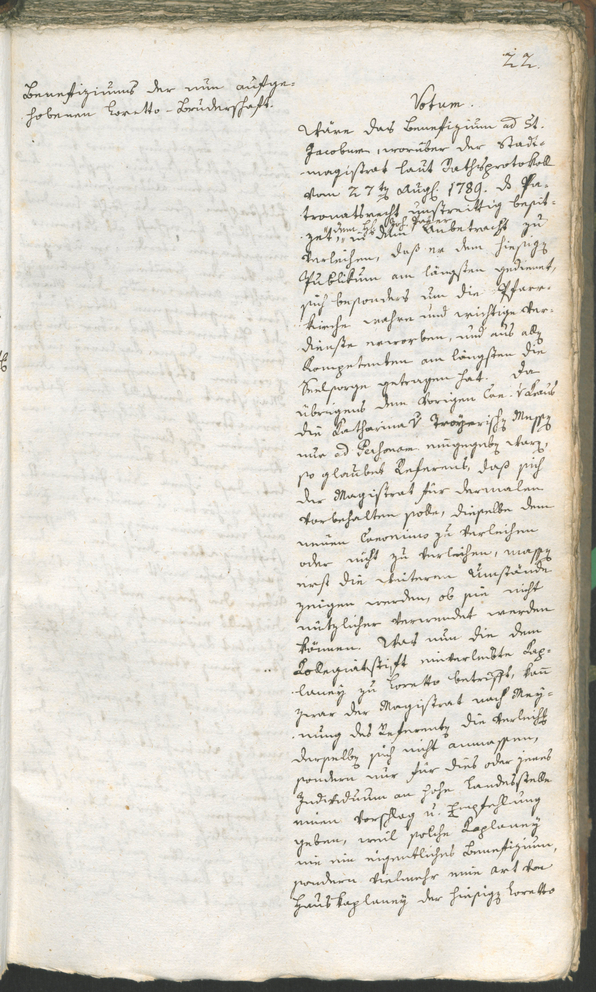 22.
Benefiziums der nun aufge-
hobenen Loretto-Bruderschaft.
Votum.
Wäre das Benefizium ad St.
Jacobum, worüber der Stadt-
magistrat laut Rathsprotokoll
vom 27ten Augs. 1789. das Pa-
tronatsrecht unstreittig besit-
zet, dem in Anbetracht zu
verleihen, daß er dem hiesigen
Publikum am längsten gedienet,
sich besonders um die Pfarr-
kirche wahre und wichtige Ver-
dienste erworben, und aus allen
Kompetenten am längsten die
Seelsorge getragen hat. Da
übrigens dem vorigen Can.
die Katharina v Troyerischen Messen
nur ad Personam eingegeben waren,
so glaubet Referens, daß sich
der Magistrat für dermalen
vorbehalten solle, dieselbe dem
neuen Canonimo zu verleihen
oder nicht zu verleihen, massen
erst die weiteren Umstände
zeigen werden, ob sie nicht
nützlicher verwendet werden
können. Was nun die dem
Kollegiatstift einverleibte Kap-
laney zu Loretto betrifft, kann
zwar der Magistrat nach Mey-
nung des Referenten die Verleihung
derselben sich nicht anmassen,
sondern nur für dies oder jenes
Individuum an hohe Landesstelle
einen Vorschlag u. Empfehlung
geben, weil solche Kaplaney
nie ein eigentliches Benefizium,
sondern vielmehr eine art von
Hauskaplaney der hiesigen Loretto